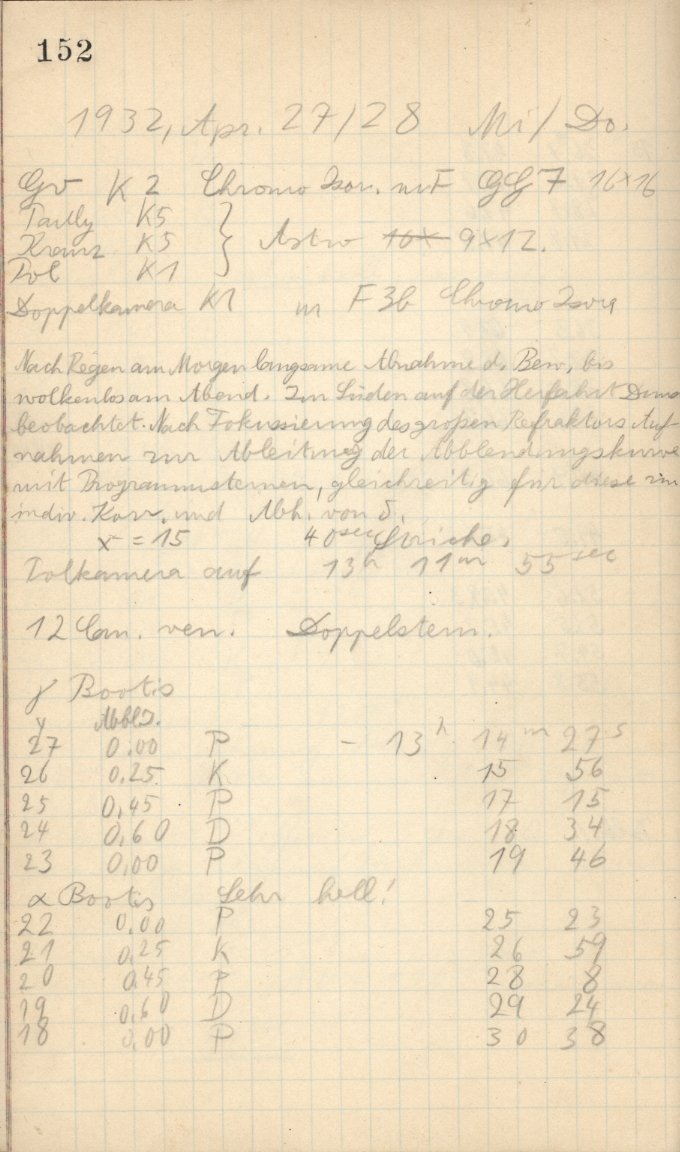 152
1932, Apr. 27/28 Mi/Do.
Gr K2 Chromo Isor. m F GG7 16x16
Tailly K5
Kranz K5 } Astro 16x 9x12.
Pol K1
Doppelkamera K1 m F 3b Chromo Isor
Nach Regen am Morgen langsame Abnahme d. Bew, bis
wolkenlos am Abend. Im Süden auf der Herfahrt Dunst
beobachtet. Nach Fokussierung des großen Refraktors Auf-
nahmen zur Ableitung der Abblendungskurve
mit Programmsternen, gleichzeitig für diese im
indiv. Korr. und Abh. von δ.
x = 15 40sec Striche.
Polkamera auf 13h 11m 55sec
12 Can. ven. Doppelstern.
γ Bootis
y Abbld.
27 0.00 P – 13h 14m 27s
26 0.25 K 15 56
25 0,45 P 17 15
24 0,60 D 18 34
23 0,00 P 19 46
α Bootis Sehr hell!
22 0,00 P 25 23
21 0,25 K 26 59
20 0,45 P 28 8
19 0,60 D 29 24
18 0,00 P 30 38